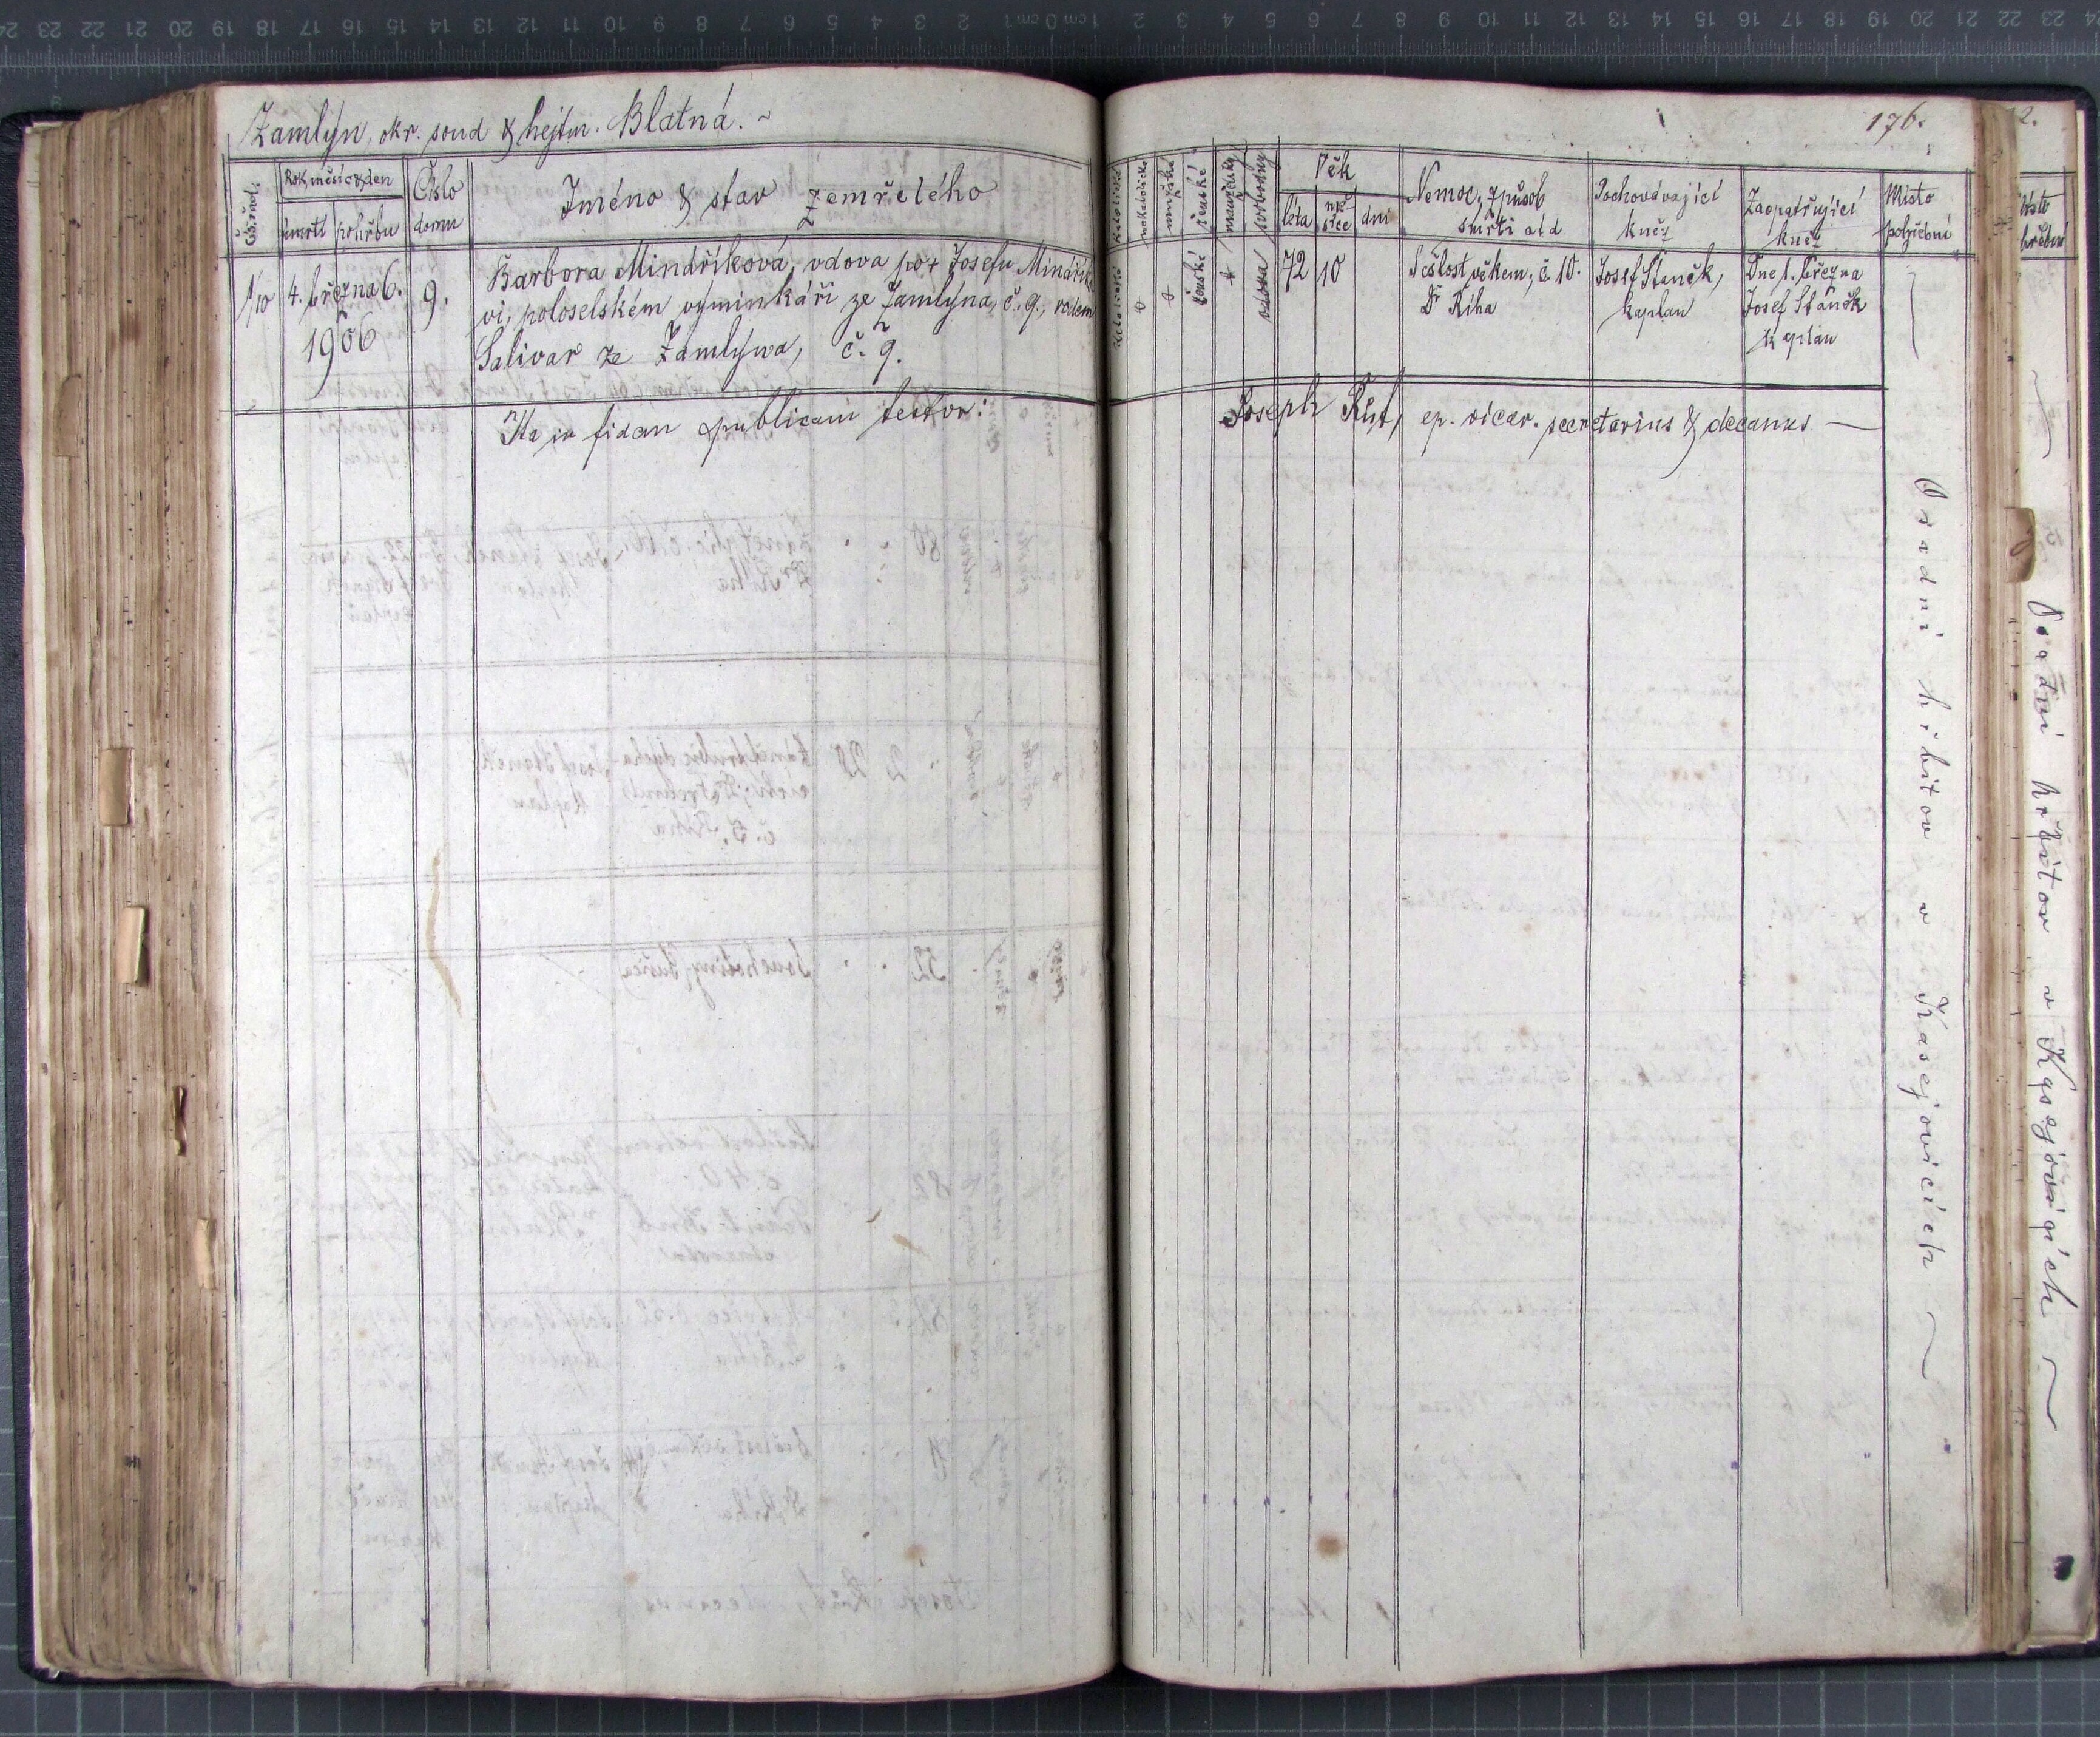 Zamlýn, okr. soud & hejtm. Blatná.
176.
Čís. řad.
Rok, měsíc & den
úmrtí pohřbu
Číslo domu
Jméno & stav zemřelého
katolické
nekatolické
mužské
ženské
manželský
svobodný
Věk
léta měsíce dni
Nemoc, způsob smrti a t d
Pochovávající kněz
Zaopatřující kněz
Místo pohřební
1/10 4. března 6. 1906
9.
Barbora Mindříková, vdova po + Josefu Mindříko
vi, poloselském výminkáři ze Zamlýna, č. 9., rodem
Salivar ze Zamlýna, č. 9.
katolické
ženské
vdova
72 10
Sešlost věkem; č. 10.
Dr Říha
Josef Staněk,
kaplan
Dne 1. března
Josef Staněk
kaplan
Ita in fidem publicam testor:
Joseph Růt, ep. vicar. secretarius & decanus
Osadní hřbitov v Kasejovicích
2.
Místo
pohřební
Osadní hřbitov v Kasejovicích